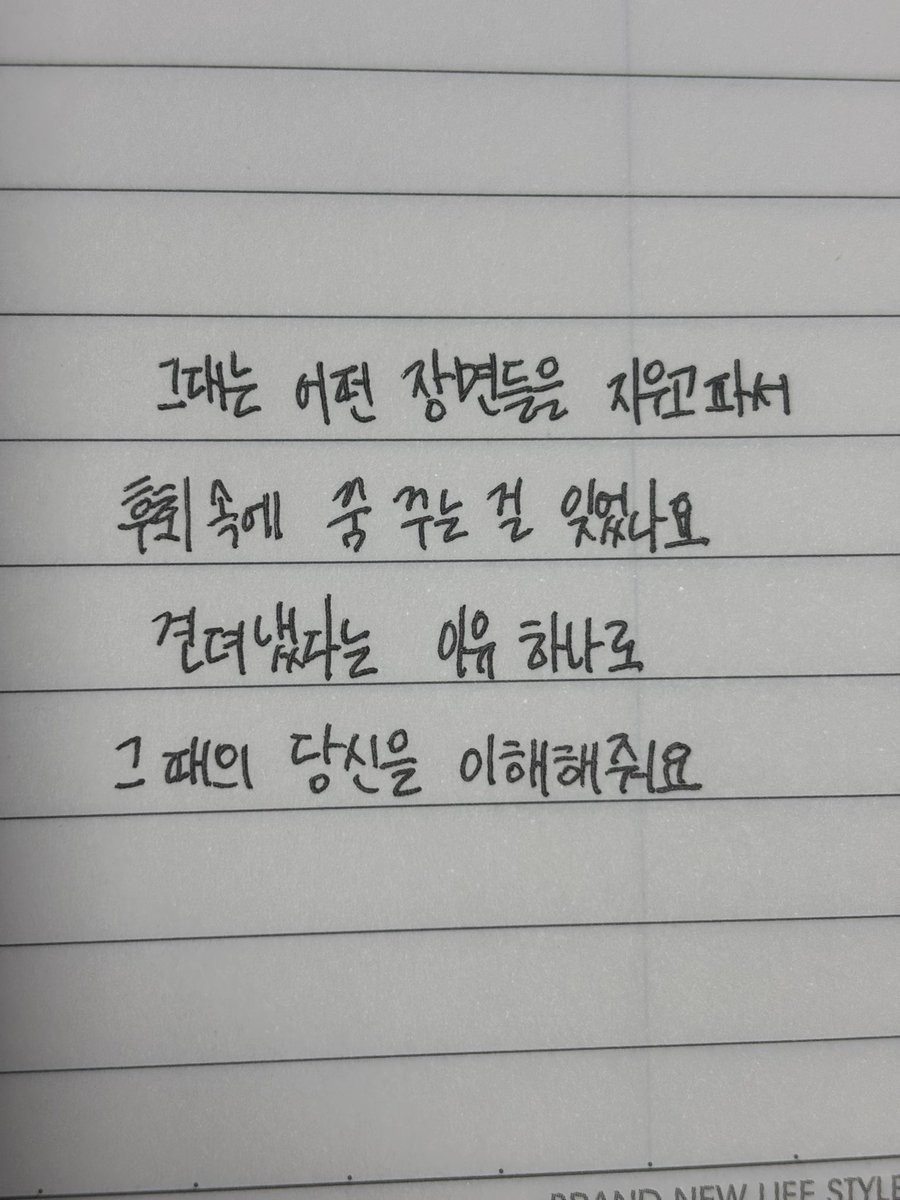 그대는 어떤 장면들을 지우고파서
후회 속에 꿈 꾸는 걸 잊었나요
견뎌냈다는 이유 하나로
그 때의 당신을 이해해줘요
BRAND NEW LIFE STYLE